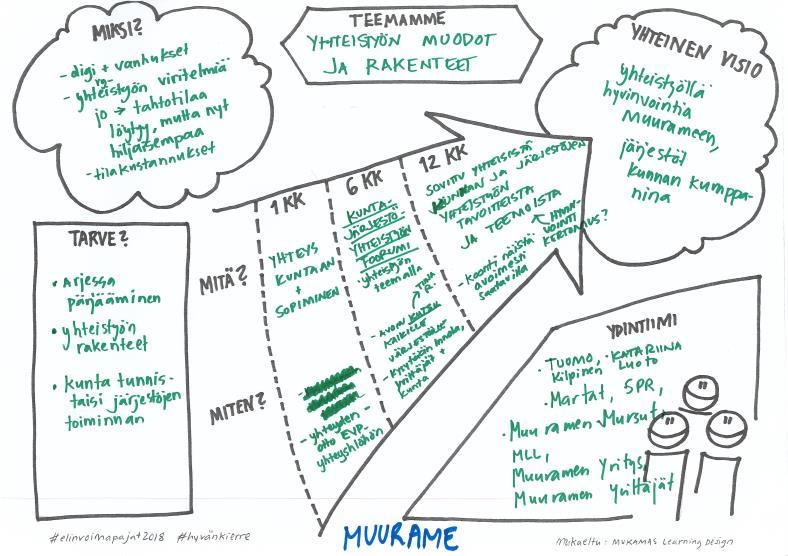 MIKSI?
- digi + vanhukset
- yhteistyön viritelmiä
jo → tahtotilaa
löytyy, mutta nyt
hiljaisempaa
- tilakustannukset
TEEMAMME
YHTEISTYÖN MUODOT
JA RAKENTEET
YHTEINEN VISIO
yhteistyöllä
hyvinvointia
Muurameen,
järjestöt
kunnan kumppa-
nina
TARVE?
• arjessa
pärjääminen
• yhteistyön
rakenteet
• kunta tunnis-
taisi järjestöjen
toiminnan
MITÄ?
MITEN?
1 KK
YHTEYS
KUNTAAN
+
SOPIMINEN
- yhteyden-
otto EVP-
yhteyshlöhön
6 KK
KUNTA-
JÄRJESTÖ-
YHTEISTYÖN
FOORUMI
yhteistyön
teemalla
TIINA
R.
- AVOIN KUTSU
KAIKILLE
JÄRJESTÖILLE
yrittäjät +
kunta
12 KK
SOVITTU YHTEISISTÄ
KUNNAN JA JÄRJESTÖJEN
YHTEISTYÖN
TAVOITTEISTA
JA TEEMOISTA
HYVIN-
VOINTI
KERTOMUS?
- koonti näistä
avoimesti
saatavilla
YDINTIIMI
• TUOMO Kilpinen
• KATARIINA LUOTO
• Martat, SPR,
• Muuramen Mursut,
MLL,
Muuramen Yritys,
Muuramen yrittäjät
#elinvoimapajat2018 #hyvänkierre
MUURAME
Mukaeltu: MUKAMAS Learning Design